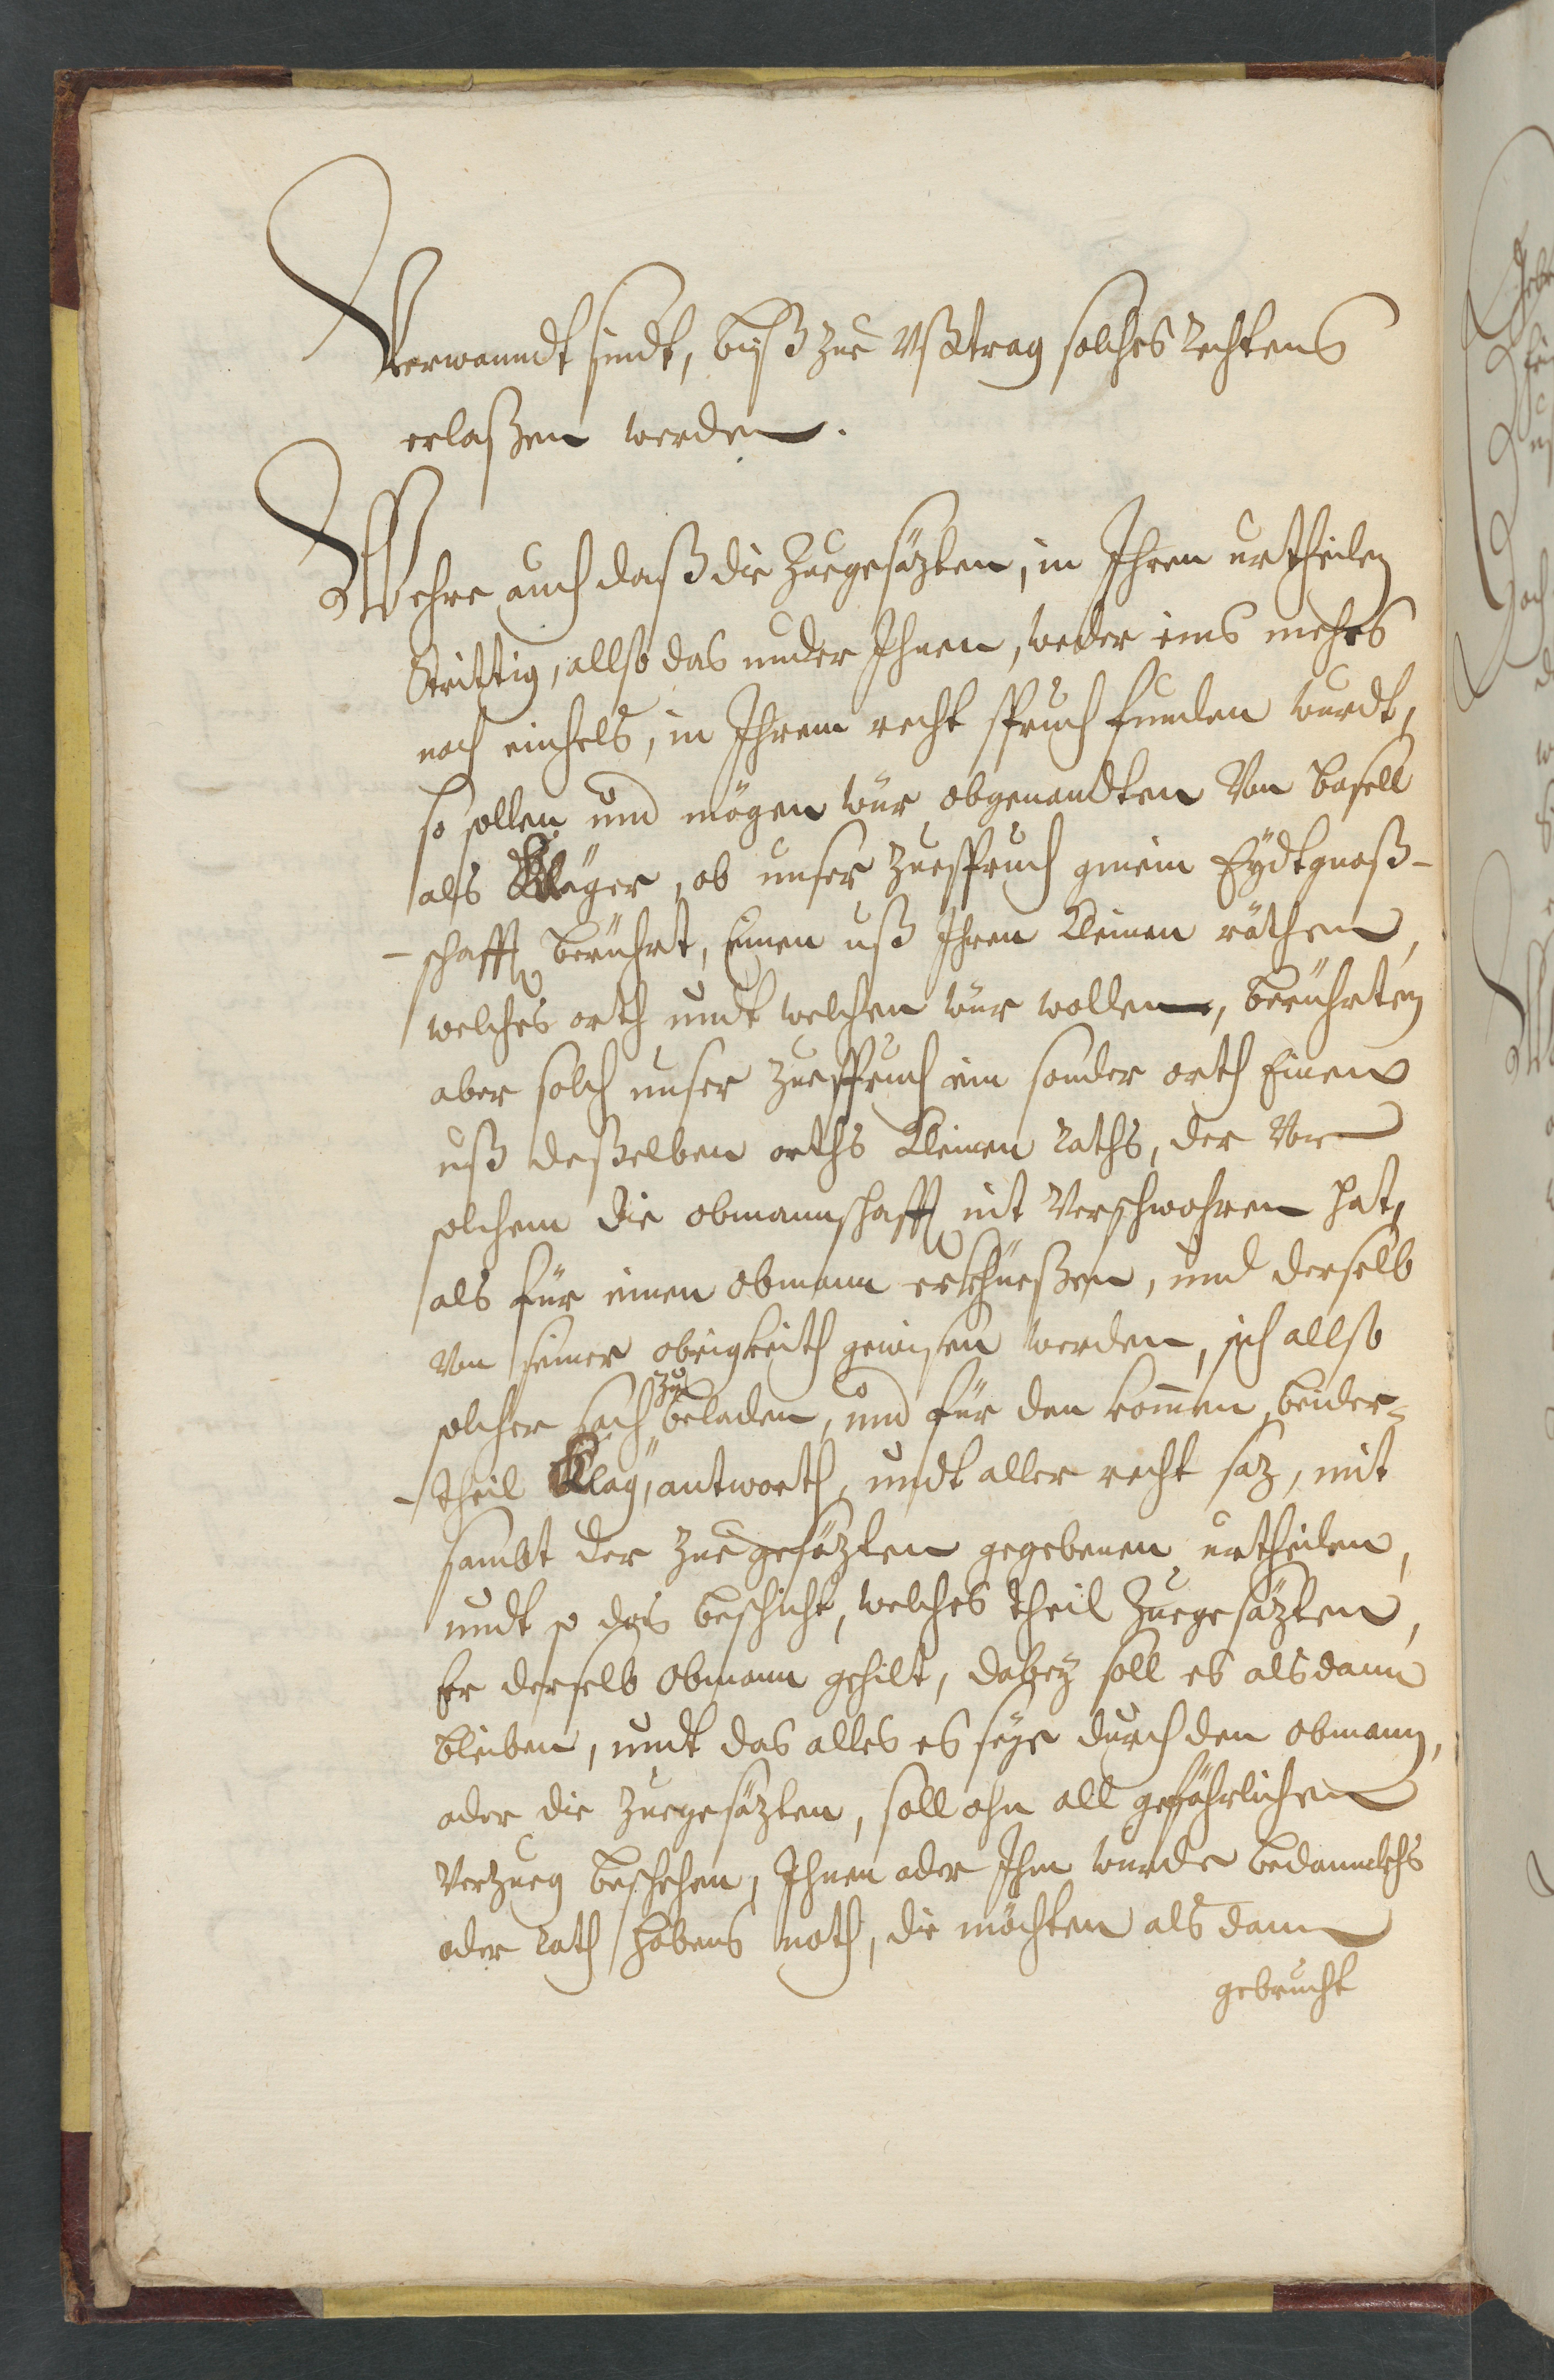 Verwanndt sindt, biß zue Ußtrag solches Rechtens
erlaßen werden.
Wehre auch daß die Zuegesäzten, in Ihren urtheilen
Strittig, allso das under Ihnen, weder eins mehrs
noch einhels, in Ihrem recht spruch funden wurdt,
so sollen und mögen wür obgenandten Von Basell
als Kläger, ob unser Zuespruch gmein Eydtgnoß-
-schafft berührt, Einen uß Ihren Kleinen räthen,
welches orth undt welchen wür wollen, berührten
aber solch unser Zuespruch ein sonder orth Einen
uß deßelben orths Kleinen Raths, der Vor
solchem die obmannschafft nit Verschwohren hat,
als für einen obmann erküeßen, und derselb
Von seiner obrigkeith gewisen werden, sich allso
solcher sach zu beladen, und für den kommen beider-
-theil Klag, antworth, undt aller recht saz, mit
sambt der Zuegesäzten gegebenen urtheilen,
undt so das beschicht, welches theil Zuegesäzten,
Er derselb obmann gehilt, dabey soll es alsdann
bleiben, undt das alles es seye durch den obmann,
oder die Zuegesäzten, soll ohn all gefährlichen
Verzueg beschehen, Ihnen oder Ihm wurde bedanckhs
oder Rath habens noth, die möchten als dann
gebrucht